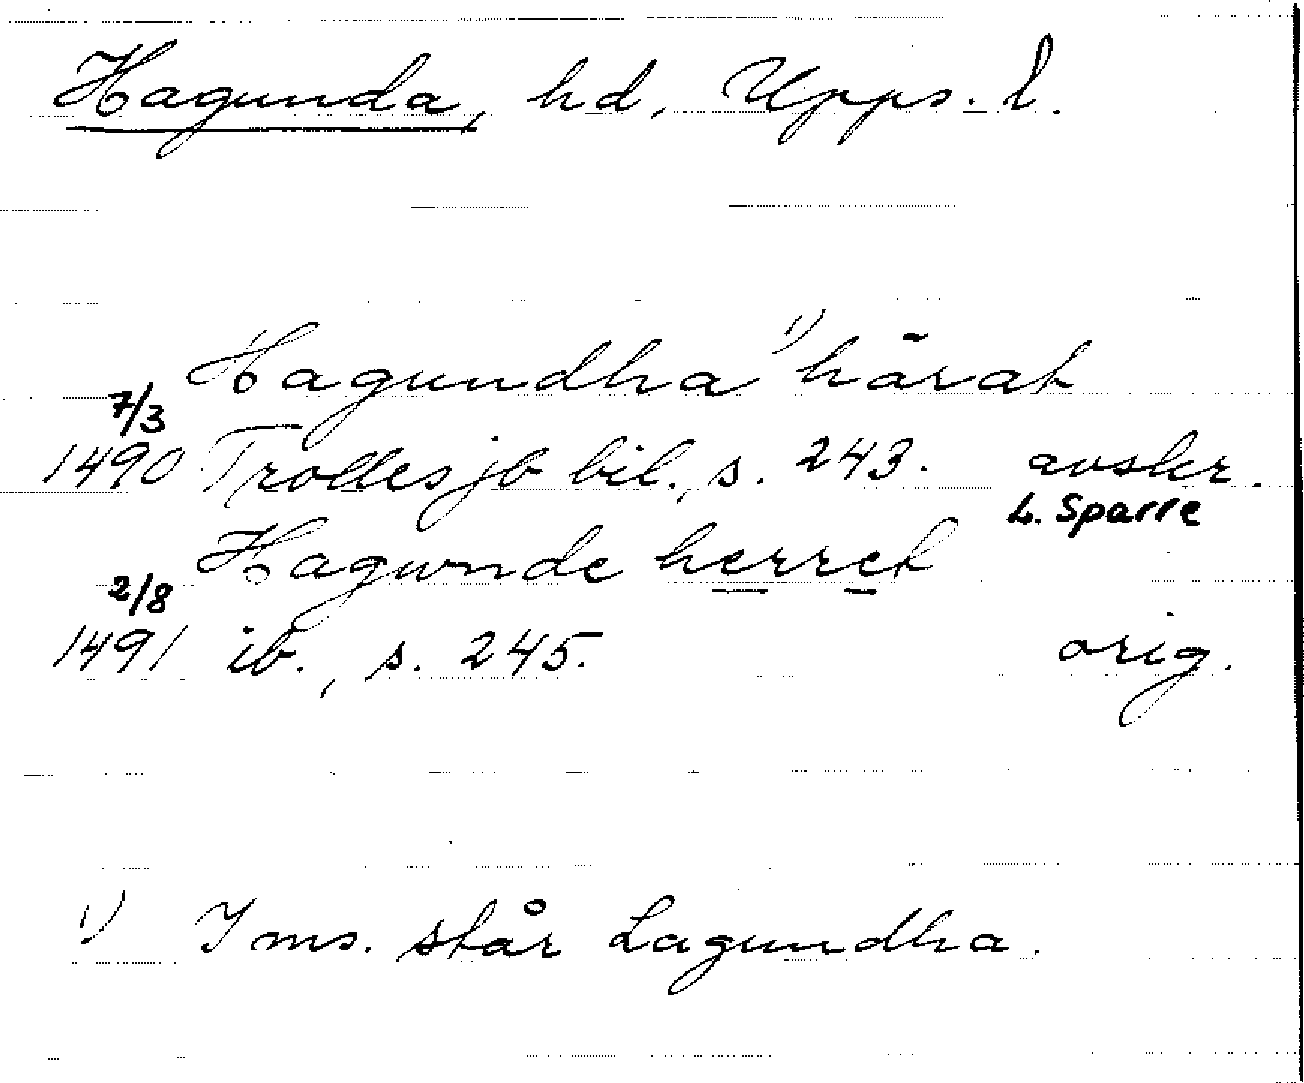 Hagunda, hd, Upps. l.
Hagundha 1) härat
7/3
1490 Trolles jb bil., s. 243. avskr.
L. Sparre
Hagwnde herret
2/8
1491 ib., s. 245. orig.
1) I ms. står Lagundha.